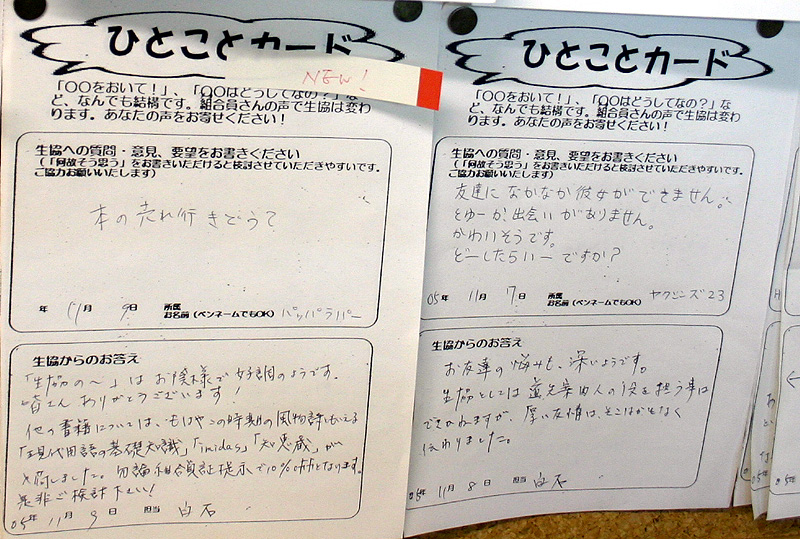 ひとことカード
NEW!
「〇〇をおいて!」、「〇〇はどうしてなの?」な
ど、なんでも結構です。組合員さんの声で生協は変わ
ります。あなたの声をお寄せください!
生協への質問・意見、要望をお書きください
(「何故そう思う」をお書きいただけると検討させていただきやすいです。
ご協力お願いいたします)
本の売れ行きどう?
年 11月 9日 所属
お名前(ペンネームでもOK) パッパラパー
生協からのお答え
「生協の〜」はお陰様で好調のようです。
皆さんありがとうございます!
他の書籍については、もはやこの時期の風物詩ともいえる
「現代用語の基礎知識」「imidas」「知恵蔵」が
入荷しました。勿論組合員証提示で10%offとなります。
是非ご検討下さい!
05年 11月 9日 担当 白石
ひとことカード
「〇〇をおいて!」、「〇〇はどうしてなの?」な
ど、なんでも結構です。組合員さんの声で生協は変わ
ります。あなたの声をお寄せください!
生協への質問・意見、要望をお書きください
(「何故そう思う」をお書きいただけると検討させていただきやすいです。
ご協力お願いいたします)
友達になかなか彼女ができません。
とゆーか、出会いがありません。
かわいそうです。
どーしたらいーですか?
05年 11月 7日 所属
お名前(ペンネームでもOK) ヤクシニズ23
生協からのお答え
お友達の悩みも、深いようです。
生協としては道先案内人の役を担う事は
できかねますが、厚い友情は、そこはかとなく
伝わりました。
05年 11月 8日 担当 白石
05年